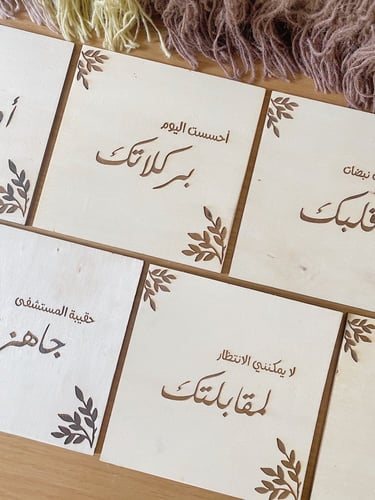 أحسست اليوم
بركلاتك
نبضات
قلبك
حقيبة المستشفى
جاهز
لا يمكنني الانتظار
لمقابلتك